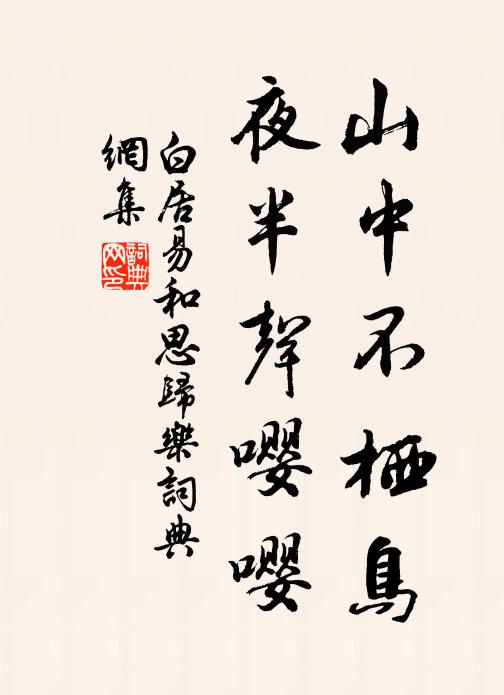 山中不栖鳥
夜半聲嚶嚶
白居易和思歸樂詞典
網集
詞典
网印